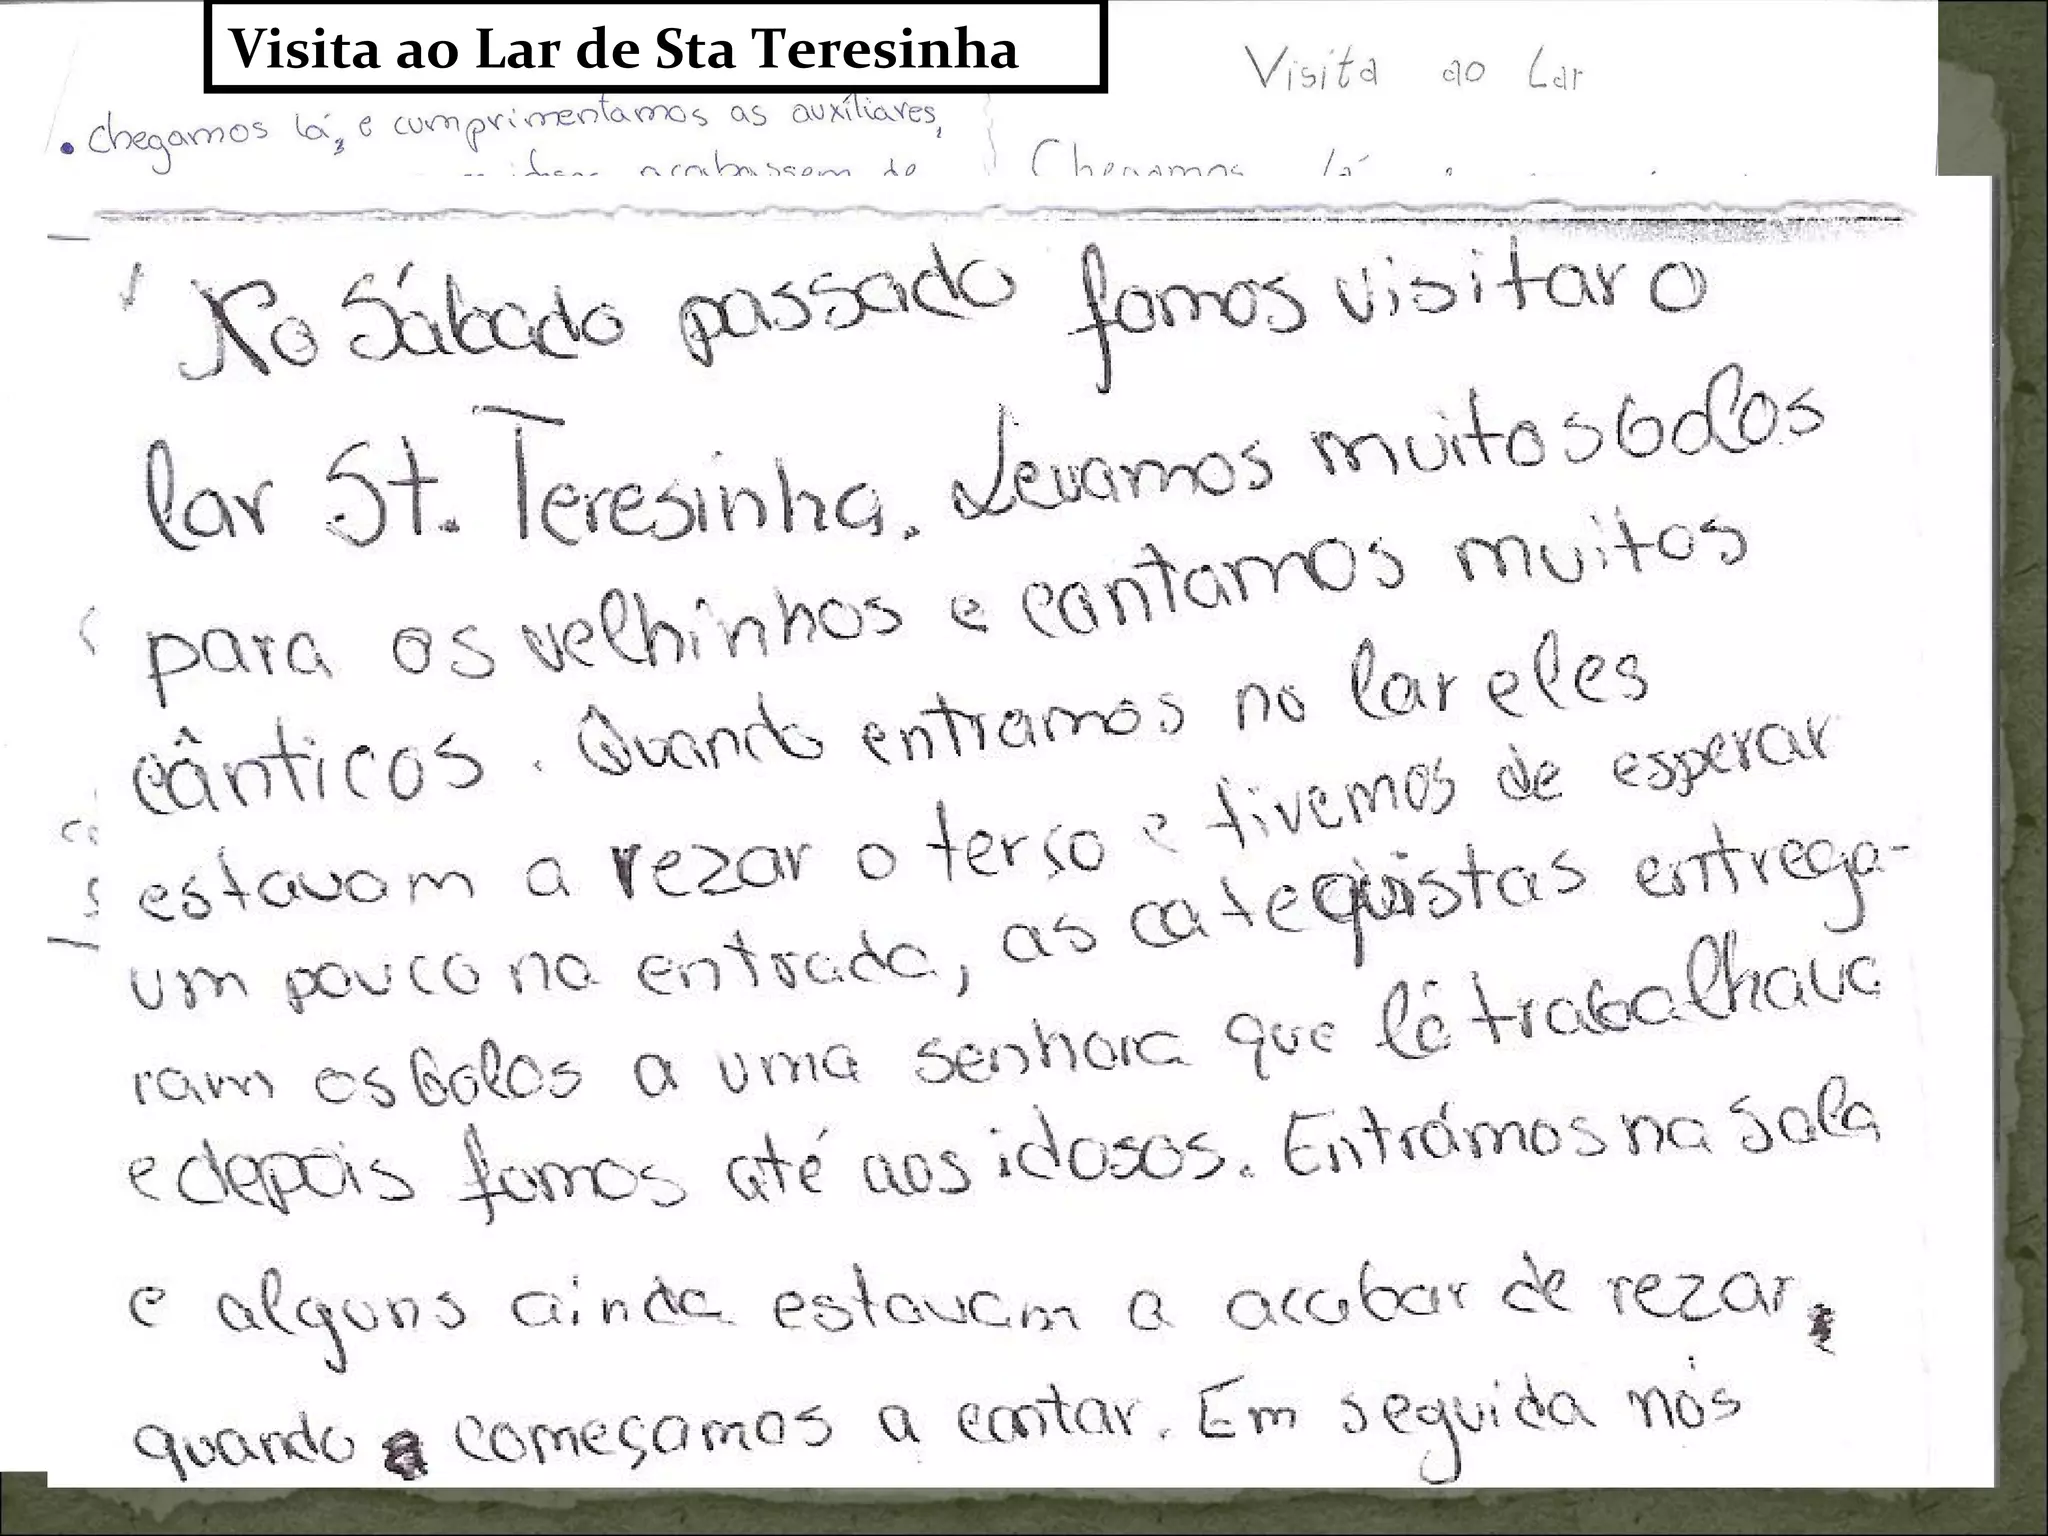 Visita ao Lar de Sta Teresinha
Visita ao Lar
• chegamos lá, e cumprimentamos as auxíliares,
acabassem de
Chegamos lá
No Sábado passado fomos visitar o
lar St. Teresinha. Levamos muitos bolos
para os velhinhos e cantamos muitos
cânticos. Quando entramos no lar eles
estavam a rezar o terso e tivemos de esperar
um pouco na entrada, as catequistas entrega-
ram os bolos a uma senhora que lá trabalhava
e depois fomos até aos idosos. Entrámos na sala
e alguns ainda estavam a acabar de rezar,
quando começamos a cantar. Em seguida nós